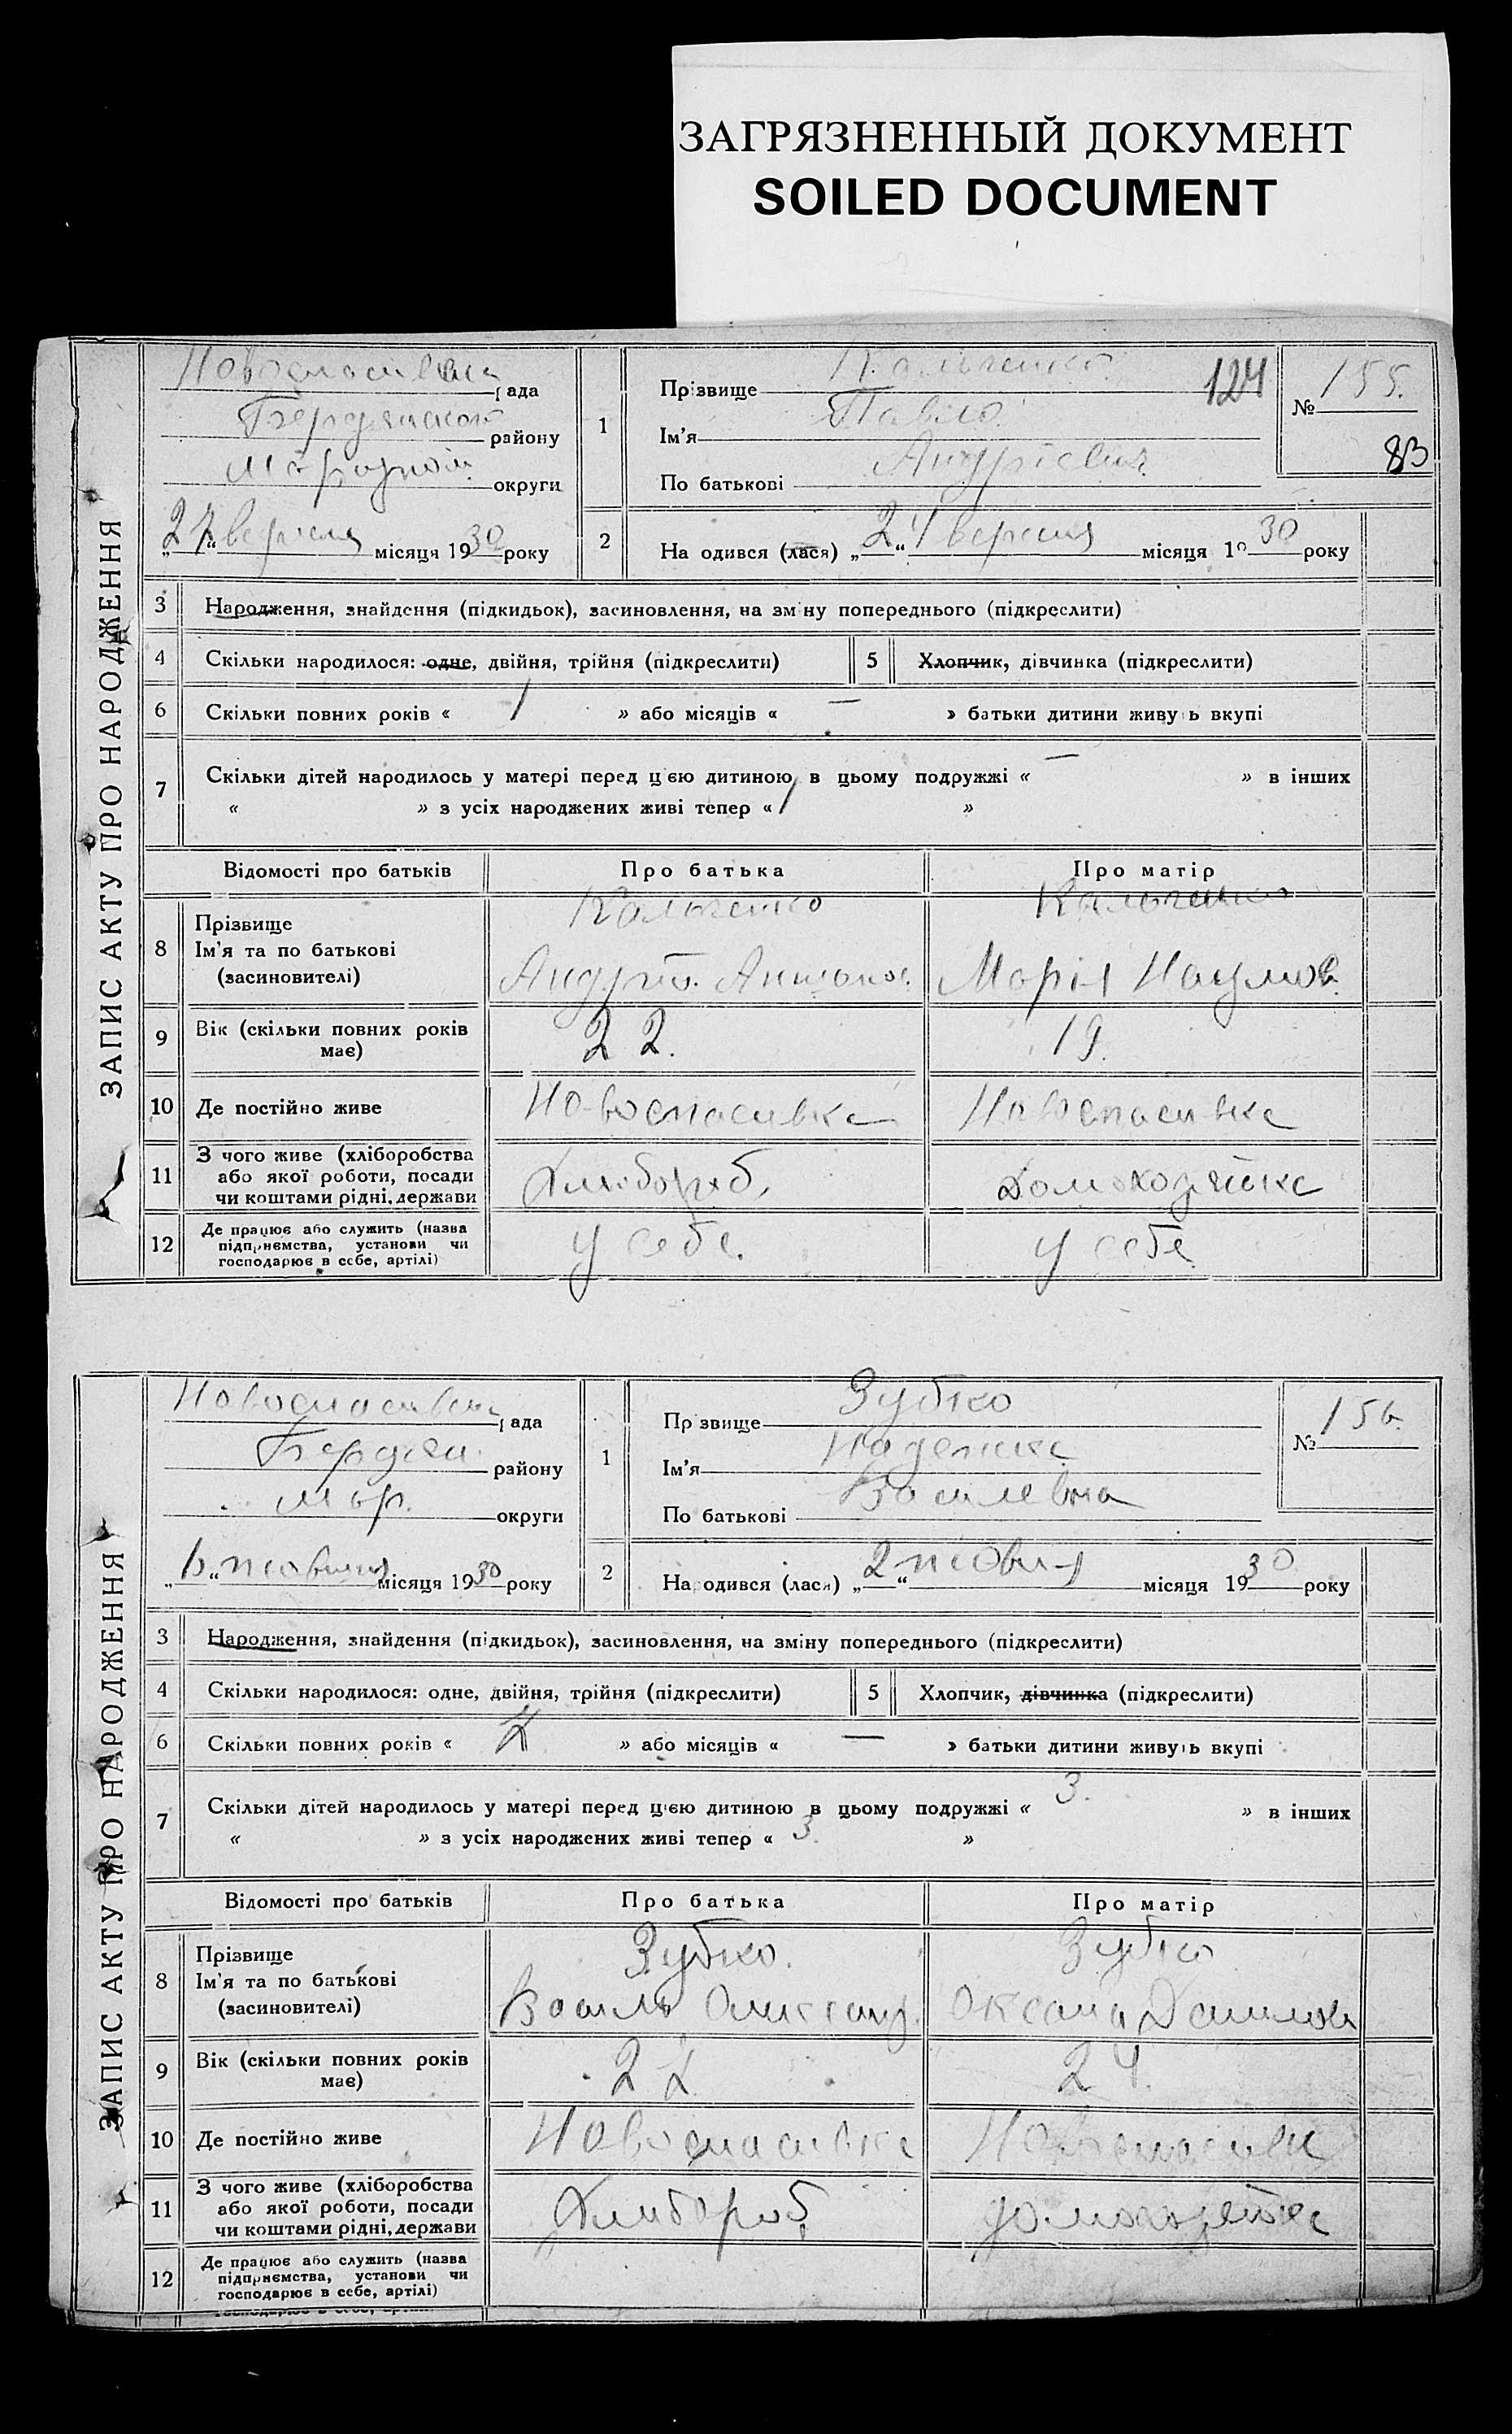 ЗАГРЯЗНЕННЫЙ ДОКУМЕНТ
SOILED DOCUMENT
ЗАПИС АКТУ ПРО НАРОДЖЕННЯ
рада
району
округи
„27“ вересня місяця 1930 року
1
Прізвище Кальченко
124
Ім'я Павло
По батькові Андрієвич
№ 155.
83
2
Народився (лася) „24“ вересня місяця 1930 року
3 Народження, знайдення (підкидьок), засиновлення, на зміну попереднього (підкреслити)
4 Скільки народилося: одне, двійня, трійня (підкреслити)
5 Хлопчик, дівчинка (підкреслити)
6 Скільки повних років « 1 » або місяців « — » батьки дитини живуть вкупі
7 Скільки дітей народилось у матері перед цією дитиною в цьому подружжі « — » в інших
« » з усіх народжених живі тепер « 1 »
Відомості про батьків Про батька Про матір
8 Прізвище
Ім'я та по батькові
(засиновителі)
Кальченко
Кальченко
Марія Наумов
9 Вік (скільки повних років
має)
22.
19.
10 Де постійно живе Новоспасівка Новоспасівка
11 З чого живе (хліборобства
або якої роботи, посади
чи коштами рідні, держави
Хлібороб.
Домохозяйка
12 Де працює або служить (назва
підприємства, установи чи
господарює в себе, артілі)
у себе.
у себе
ЗАПИС АКТУ ПРО НАРОДЖЕННЯ
рада
Бердян. району
Мар. округи
жовтня місяця 1930 року
1
Прізвище Зубко
Ім'я
По батькові Василевна
№ 156.
2
Народився (лася) „2“ жовтня місяця 1930 року
3 Народження, знайдення (підкидьок), засиновлення, на зміну попереднього (підкреслити)
4 Скільки народилося: одне, двійня, трійня (підкреслити)
5 Хлопчик, дівчинка (підкреслити)
6 Скільки повних років « » або місяців « — » батьки дитини живуть вкупі
7 Скільки дітей народилось у матері перед цією дитиною в цьому подружжі « 3. » в інших
« » з усіх народжених живі тепер « 3. »
Відомості про батьків Про батька Про матір
8 Прізвище
Ім'я та по батькові
(засиновителі)
Зубко.
Зубко
Василь Олександ.
Оксана Данилов
9 Вік (скільки повних років
має)
24.
10 Де постійно живе Новоспасівка Новоспасівка
11 З чого живе (хліборобства
або якої роботи, посади
чи коштами рідні, держави
Хлібороб.
домохозяйка
12 Де працює або служить (назва
підприємства, установи чи
господарює в себе, артілі)